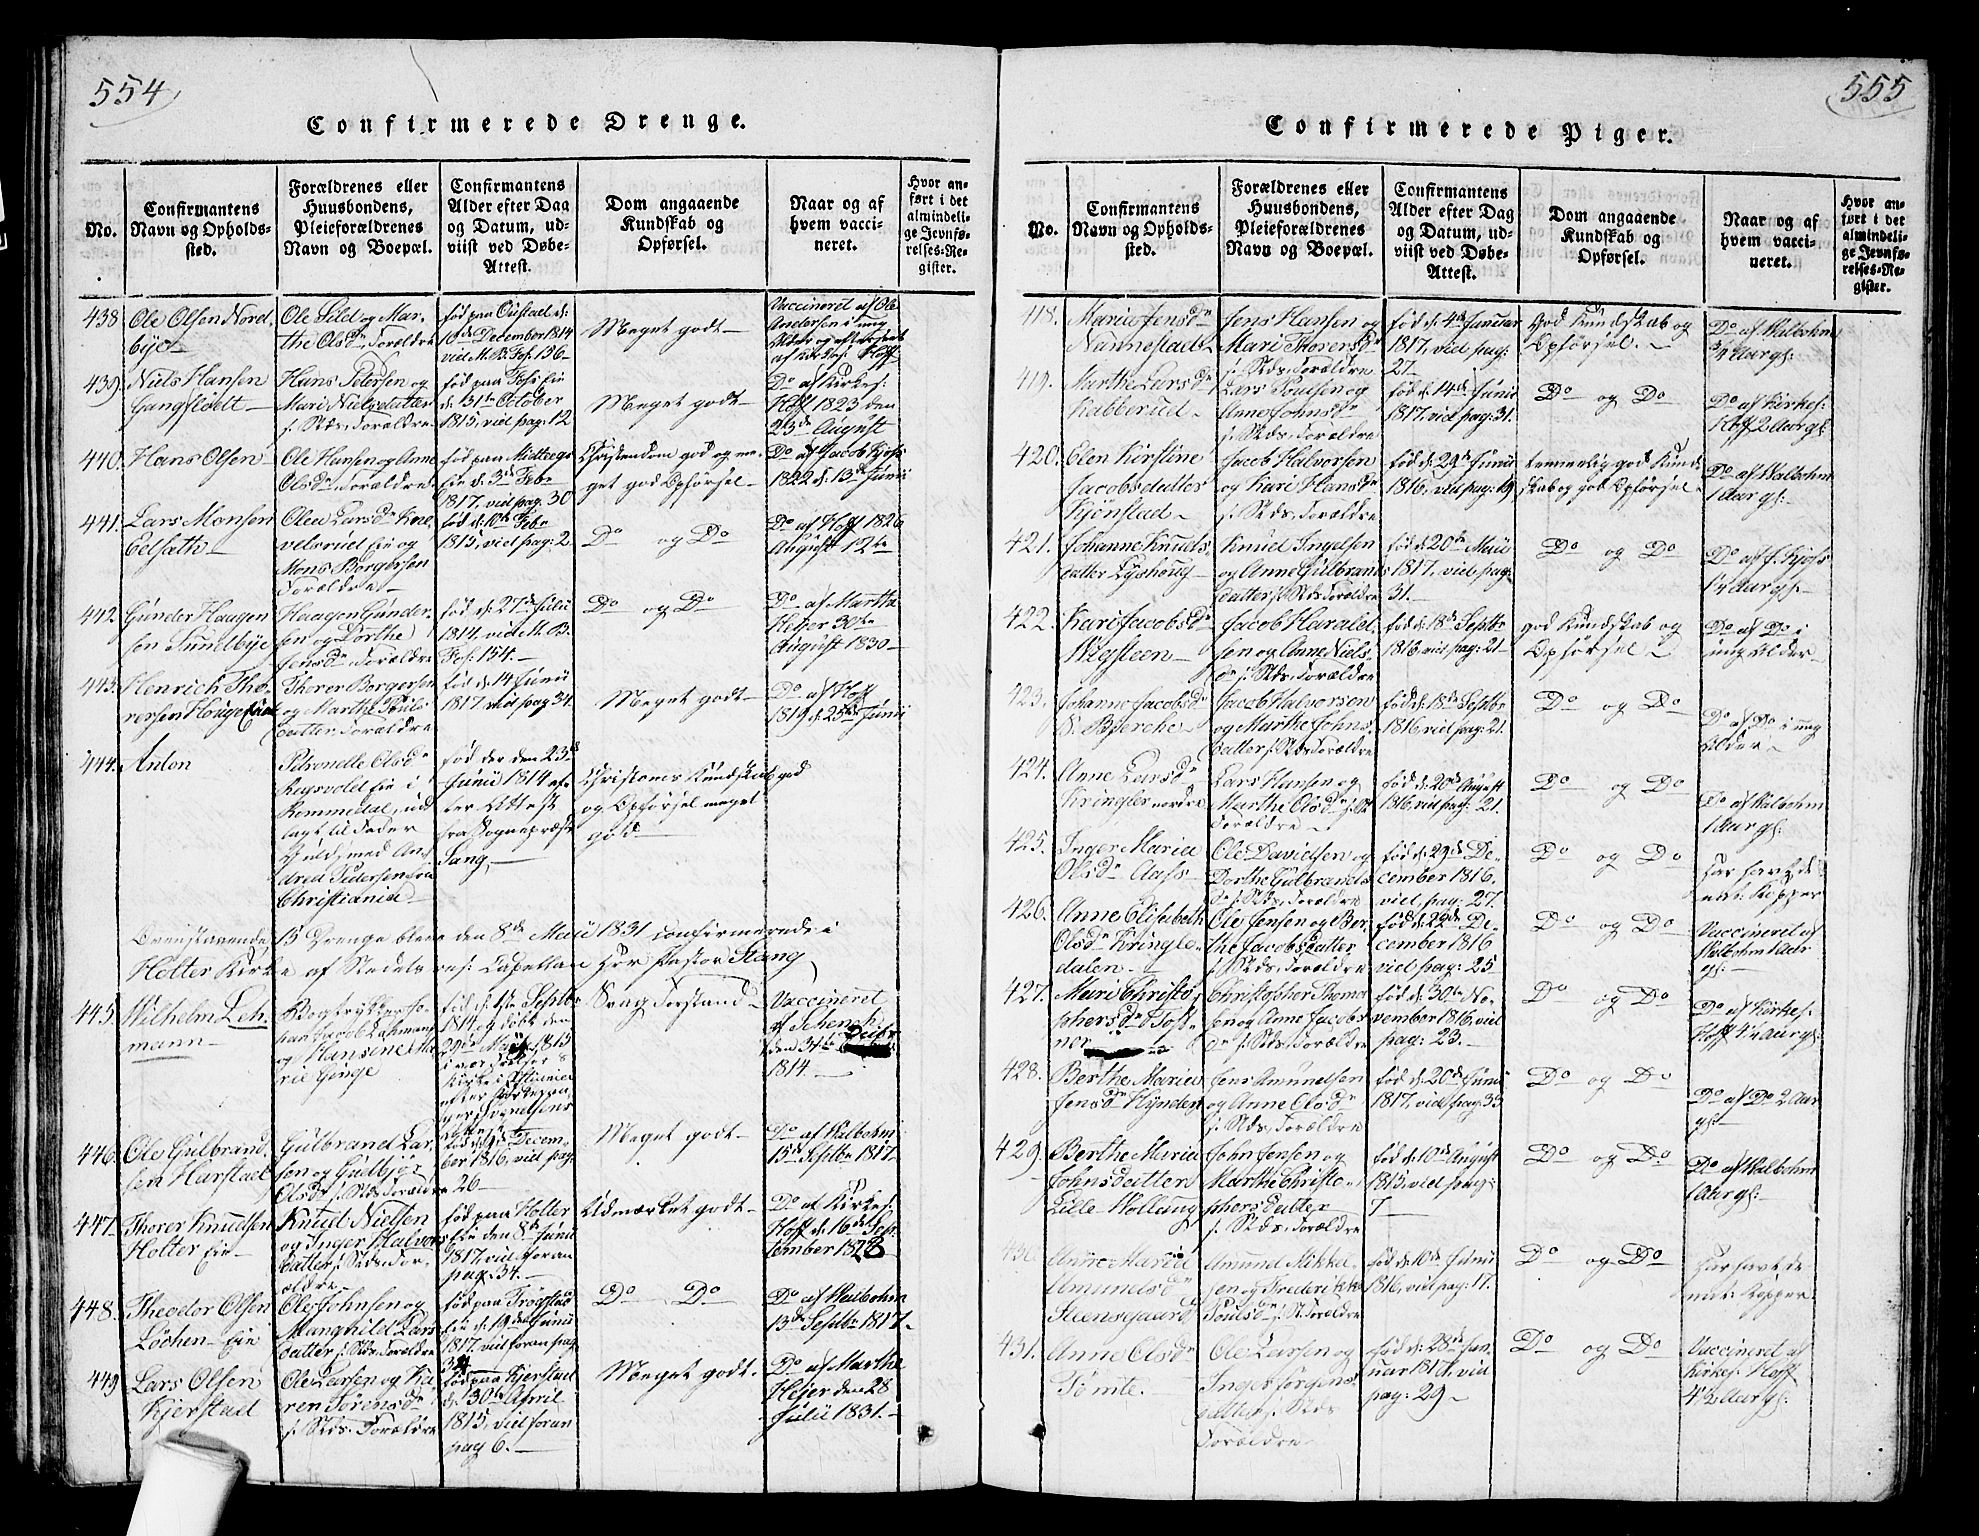 554
Confirmerede Drenge.
No.
Confirmantens
Navn og Opholds-
sted.
Forældrenes eller
Huusbondens,
Pleieforældrenes
Navn og Boepæl.
Confirmantens
Alder efter Dag
og Datum, ud-
viist ved Døbe-
Attest.
Dom angaaende
Kundskab og
Opførsel.
Naar og af
hvem vacci-
neret.
Hvor an-
ført i det
almindeli-
ge Jevnfø-
relses-Re-
gister.
438
Ole Olsen Nord-
bye
Ole Lild og Mar-
the Olsdr Forældre
født paa Oustad d:
10de December 1814
vid M.B. Fol: 156
Meget godt
Vaccineret af Ole
Andersen i ung
Alder og
af Kirkes: Hoff
439
Niels Hansen
Hans Petersen og
Mari Nielsdatter
s. Stds. Forældre
d: 31te October
1815, vid pag: 12
Meget godt
Do af Kirkes:
Hoff 1823 den
23de August
440.
Hans Olsen
Ole Hansen og Anne
Olsdr Forældre
Eie d: 3de Febr
1817, vid pag. 30
Christendom god og me-
get god Opførsel
Do af Jacob Kjøs
1822 d: 13de Junii
441.
Lars Monsen
Olea Larsdr
Eie og
Mons Borgersen
Forældre
fød d: 10de Febr
1815, vid pag: 2
Do og Do
Do af Hoff 1826
August 12te
442
Gunder Haagen
sen Sundbye
Haagen Gunder-
sen og Dorthe
Jensdr Forældre
fød d: 27de Julii
1814, vid M.B.
Fol: 154.
Do og Do
Do af Marthe
Hejer 30te
August 1830
443.
Henrich Tho-
rersen Houge Eie
Thorer Borgersen
og Marthe
datter Forældre
fød d: 14 Junii
1817 vid pag 34.
Meget godt
Do af Hoff
1819 d: 25de Junii
444.
Anton
Petronelle Olsdr
Eie i
Rommedal, ud
lagt til Fader
med An-
dreas Pedersen fra
Christiania
fød der den 23de
Junii 1814 ef-
ter Attest
fra Sognepræst
Lang,
Christendoms Kundskab god
og Opførsel meget
god
Ovenstaaende 15 Drenge bleve den 8de Maii 1831 confirmerede i
Holter Kirke af Stedets res: Capellan Hør Pastor Stang
445.
Wilhelm Leh-
mann
Bogtrykker
Jacob Lehmann
og Hansine Ma-
rie Ginge
fød d: 1te Septbr
1814 og døbt den
29de Maii 1815
Svag Forstand
Vaccineret
af Schench
den 31te
1814
446.
Ole Gulbrand
sen Harstad
Gulbrand Lar-
sen og Gudbjør
Olsdr s. Stds. Forældre
Decem-
ber 1816, vid pag.
26
Meget godt
Do af Walbohm
15de Septbr 1817
447
Thorer Knudsen
Holter Eie
Knud Nielsen
og Inger Halvors
datter, s. Stds. For-
ældre
fød paa Holter
Eie den 8de Junii
1817, vid foran
pag. 34.
Udmærket godt
Do af Kirkes:
Hoff d: 16de Sep-
tember 1828
448.
Theodor Olsen
Løchen Eie
Ole Johnsen og
Manghild Lars
datter, s. Stds. Forældre
fød paa Frogstad
Eie d: 19de Junii
1817, vid foran pag
34
Do Do
Do af Walbohm
13de Septbr 1817
449
Lars Olsen
Kjerstad
Ole Larsen og Ka-
ren Sørensdr
s. Stds. Forældre
fød paa Kjerstad
d: 30te April
1815, vid foran
pag 6.
Meget godt.
Do af Marthe
Hejer den 28
Julii 1831.
555
Confirmerede Piger.
No.
Confirmantens
Navn og Opholds-
sted.
Forældrenes eller
Huusbondens,
Pleieforældrenes
Navn og Boepæl.
Confirmantens
Alder efter Dag
og Datum, ud-
viist ved Døbe-
Attest.
Dom angaaende
Kundskab og
Opførsel.
Naar og af
hvem vacci-
neret.
Hvor an-
ført i det
almindeli-
ge Jevnfø-
relses-Re-
gister.
418.
Maria Jensdr
Nannestad
Jens Hansen og
Mari Thorensdr
s. Stds. Forældre
fød d: 4de Januar
1817, vid pag:
27
god Kundskab og
Opførsel.
Do af Walbohm
3/4 Aar gl:
419.
Marthe Larsdr
Kabberud
Lars Poulsen og
Anne Johnsdr
s. Stds. Forældre
fød d: 14de Junii
1817, vid pag: 31.
Do og Do
Do af Kirkes:
Hoff 2 Aar gl:
420.
Elen Kirstine
Jacobsdatter
Kjønstad
Jacob Halvorsen
og Kari Hansdr
s. Stds. Forældre
fød d: 29de Junii
1816, vid pag: 19
temmelig god Kund
skab og god Opførsel
Do af Walbohm
1 Aar gl.
421.
Johanne Knuds-
datter Lyshoug
Knud Ingelsen
og Anne Gulbrands
datter, s. Stds. Forældre
fød d: 20de Maii
1817, vid pag:
31.
Do og Do
Do af J. Kjøs
1/4 Aar gl:
422.
Kari Jacobsdr
Wigsteen
Jacob Harald-
sen og Anne Niels-
dr s. Stds. Forældre
fød d: 18de Septbr
1816, vid pag: 21
god Kundskab og
Opførsel
Do af Do i
ung Alder
423.
Johanne Jacobsdr
Bjerche
Jacob Halvorsen
og Marthe Johns-
datter s. Stds. Forældre
fød d: 18de Septbr
1816, vid pag: 21
Do og Do
Do af Do i ung
Alder
424.
Anne Larsdr
Kringler nordre
Lars Hansen og
Marthe Olsdr s. St
Forældre
fød d: 20de August
1816, vid pag: 21.
Do og Do
Do af Walbohm
1 Aar gl:
425.
Inger Maria
Olsdr Aass
Ole Davidsen og
Dorthe Gulbrands
dr s. Stds. Forældre
fød d: 29de De-
cember 1816.
vid pag: 27.
Do og Do
har havt de
nat: Kopper
426.
Anne Elisabeth
Olsdr Kringle-
dalen
Ole Jensen og Ber-
the Jacobsdatter
s. Stds. Forældre
fød d: 22de De-
cember 1816
vid pag: 25
Do og Do
Vaccineret af
Walbohm 1 Aar
gl:
427.
Mari Christo-
phersdr Toft-
ner
Christopher Thoma-
sen og Anne Jacobs
dr s. Stds. Forældre
fød d: 30te No-
vember 1816, vid
pag: 23.
Do og Do
Do af Kirkes:
Hoff 4 1/2 Aar gl:
428.
Berthe Maria
Jensdr Hynden
Jens Amundsen
og Anne Olsdr
s. Stds. Forældre
fød d: 20de Junii
1817, vid pag: 33
Do og Do
Do af Do 2 Aar
gl:
429.
Berthe Maria
Johnsdatter
Lille Wollaug
John Jensen og
Marthe Christo-
phersdatter
s. Stds. Forældre
fød d: 10de August
1815, vid pag:
7
Do og Do
Do af Walbohm
1 Aar gl:
430.
Anne Maria
Amundsdr
Steensgaard
Amund Mikkel-
sen og Frederikke
Poulsdr s. St. Forældre
fød d: 10de Junii
1816, vid pag: 17.
Do og Do
har havt de
nat: Kopper.
431.
Anne Olsdr
Tømte.
Ole Larsen og
Inger Jørgens-
datter, s. Stds
Forældre
fød d: 28de Jan-
uar 1817, vid
pag: 29
Do og Do
Vaccineret af
Kirkes: Hoff
4 1/2 Aar gl: